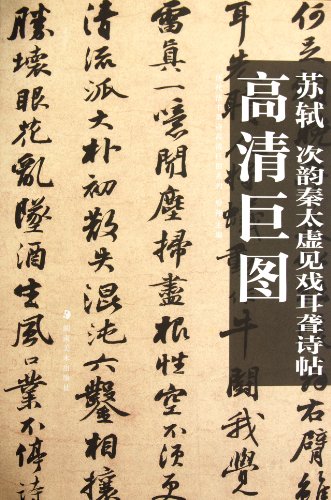 苏轼 次韵秦太虚见戏耳聋诗帖
高清巨图
右臂
耳先 牛鬭我覺
雷真一噫聞塵掃盡根性空不須更
清流派大朴初散失混沌六鑿相攘
勝壞眼花亂墜酒生風口業不停詩
湖南美术出版社